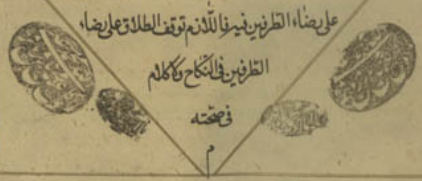 على رضاء الطرفين فيه فاللازم توقف الطلاق على رضاء
الطرفين في النكاح ولا كلام
في صحته
م